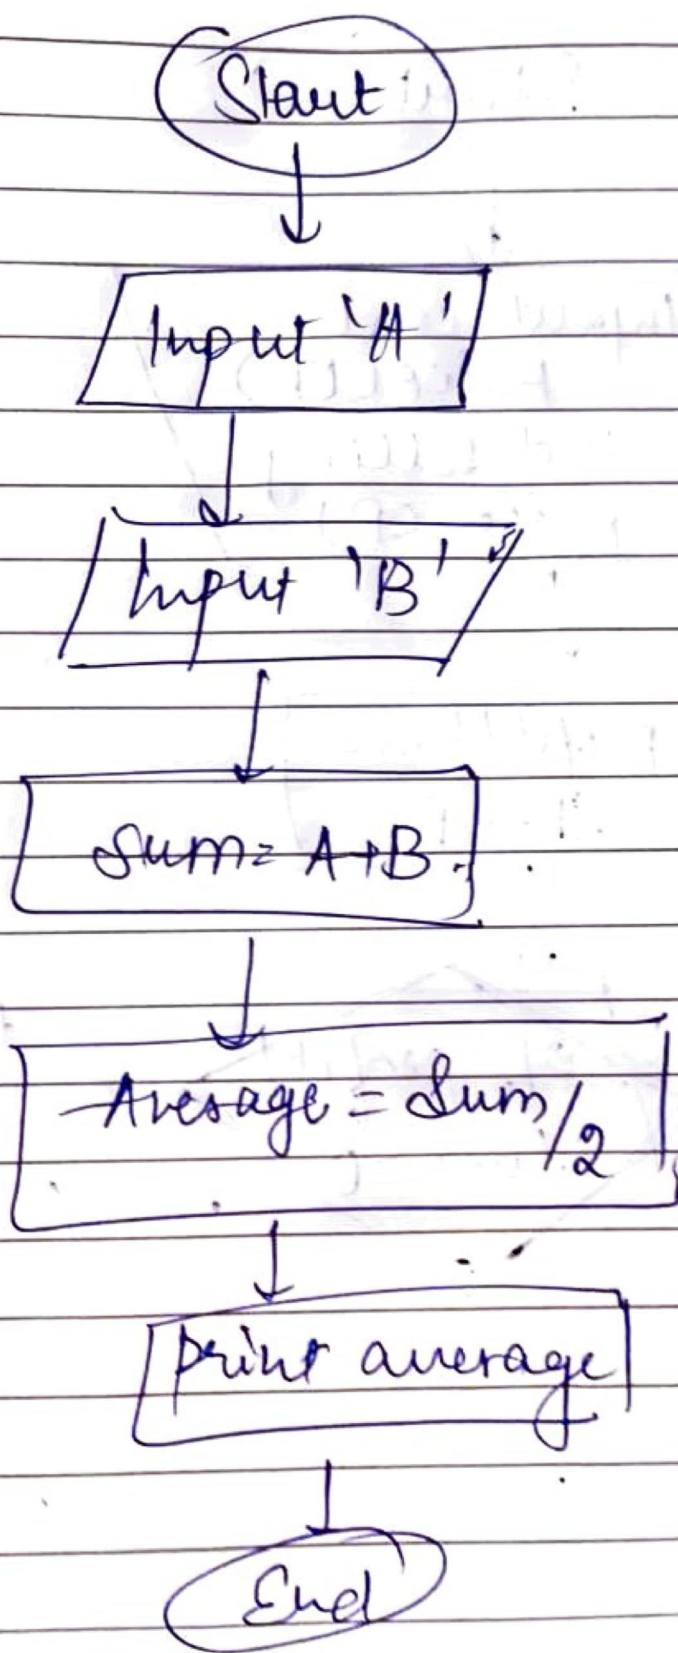 Start
Input 'A'
Input 'B'
Sum = A+B.
Average = Sum/2
print average
End